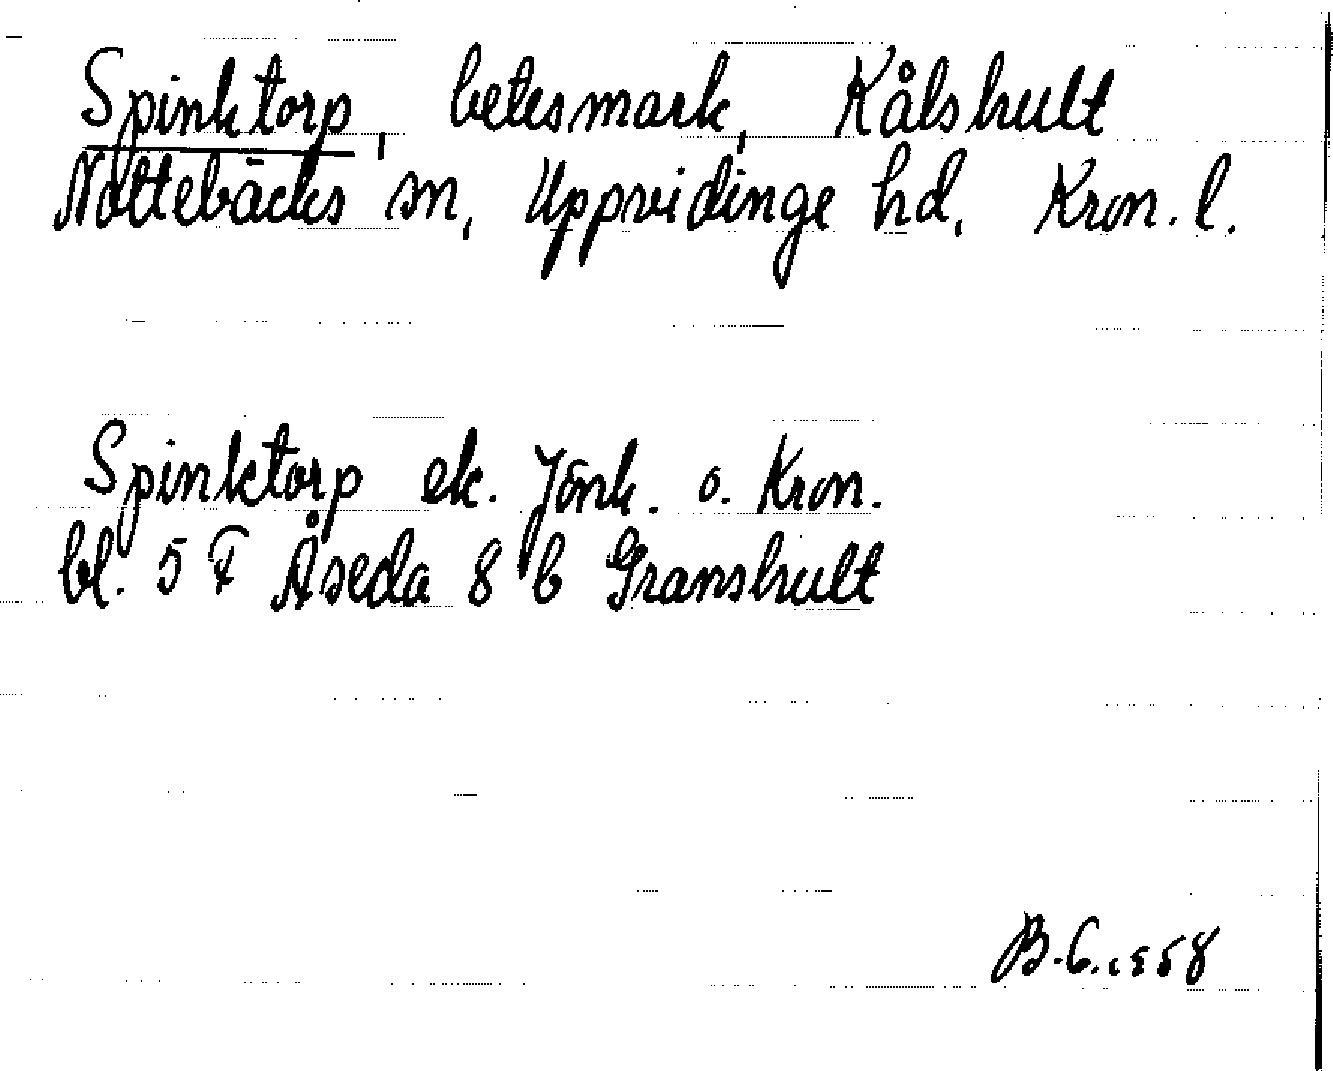 Spinktorp, betesmark, Kålshult
Nottebäcks sn, Uppvidinge hd, Kron. l.
Spinktorp ek. Jönk. o. Kron.
bl. 5 F Åseda 8 b Granshult